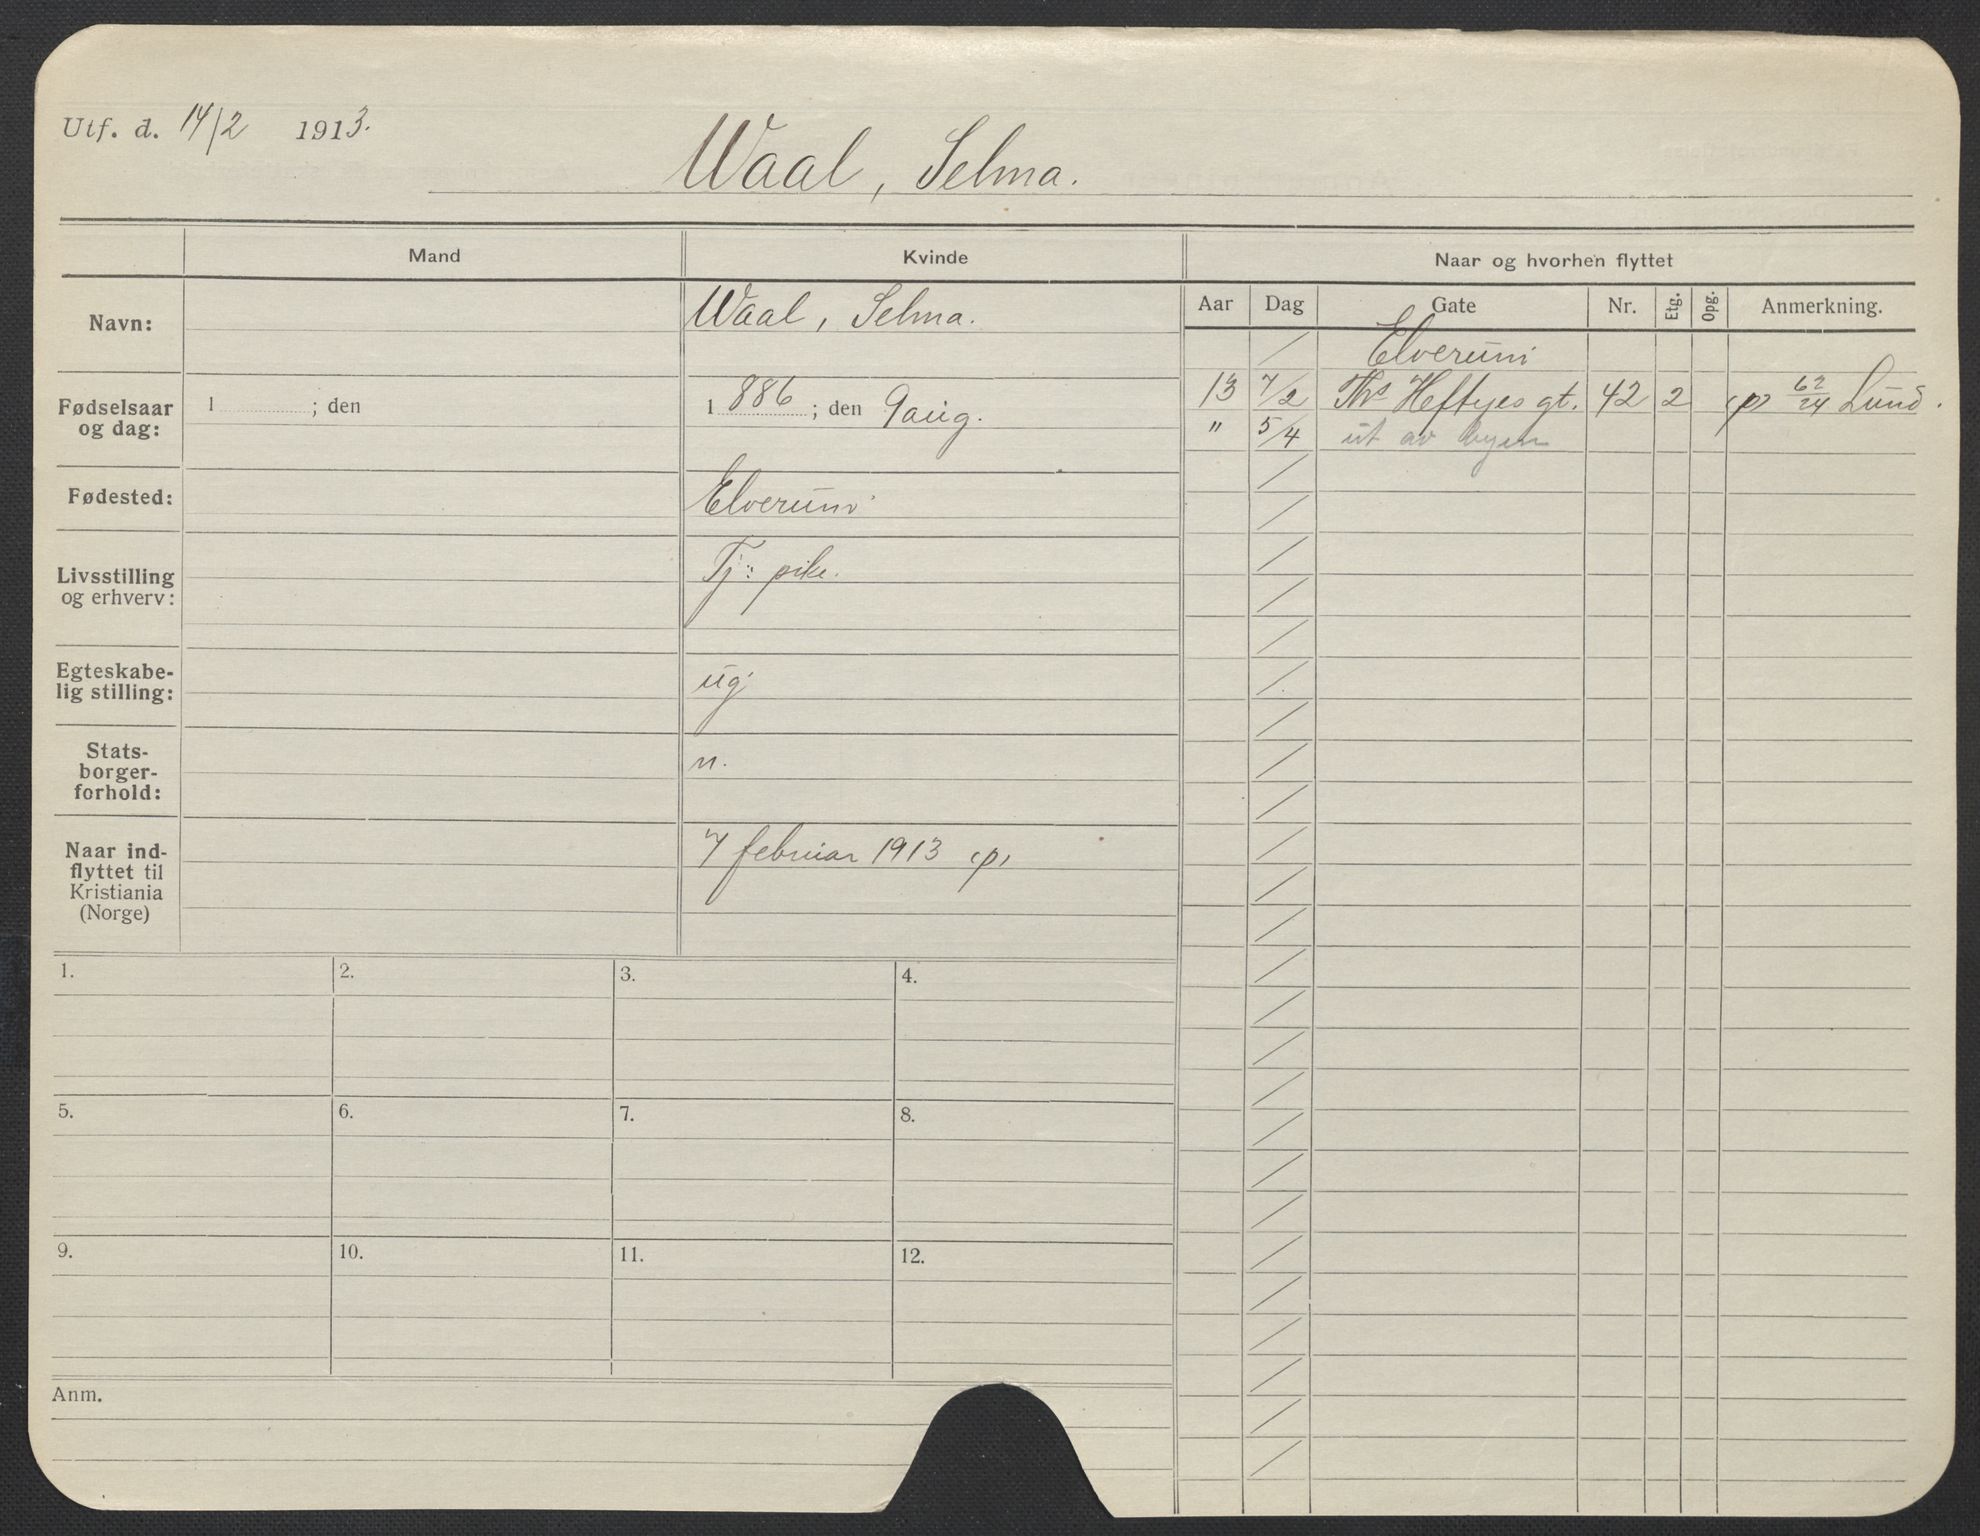 Utf. d. 14/2 1913.
Waal, Selma.
Mand Kvinde Naar og hvorhen flyttet
Aar Dag Gate Nr. Etg. Opg. Anmerkning.
Navn: Waal, Selma.
Elverum
Fødselsaar og dag: 1 ; den 1886 ; den 9 aug.
13 7/2 Ths Heftyes gt. 42 2 (p) 62/24 Lund.
" 5/4 ut av byen
Fødested: Elverum
Livsstilling og erhverv: Tj: pike.
Egteskabe-
lig stilling: ug
Stats-
borger-
forhold: n.
Naar ind-
flyttet til
Kristiania
(Norge) 7 februar 1913 (p)
1. 2. 3. 4.
5. 6. 7. 8.
9. 10. 11. 12.
Anm.